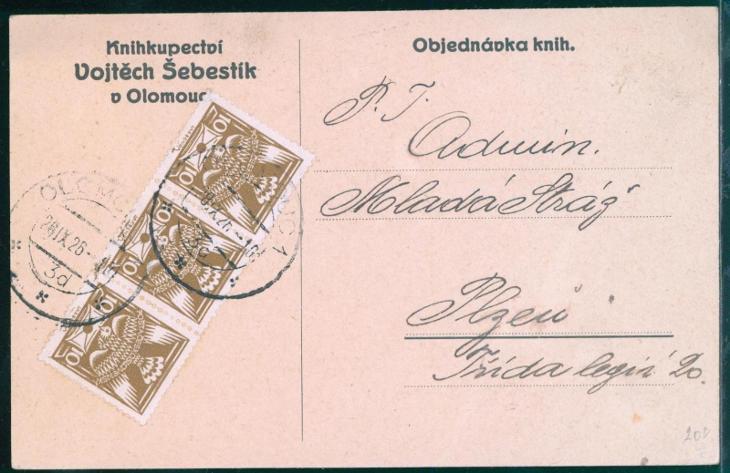 Knihkupectví
Vojtěch Šebestík
v Olomouc
Objednávka knih.
P. T.
Admin.
Mladá Stráž
Plzeň
Třída legií 20.
10
10
10
10
10
OLOMOUC 1
26.IX.26
3d
3d
20